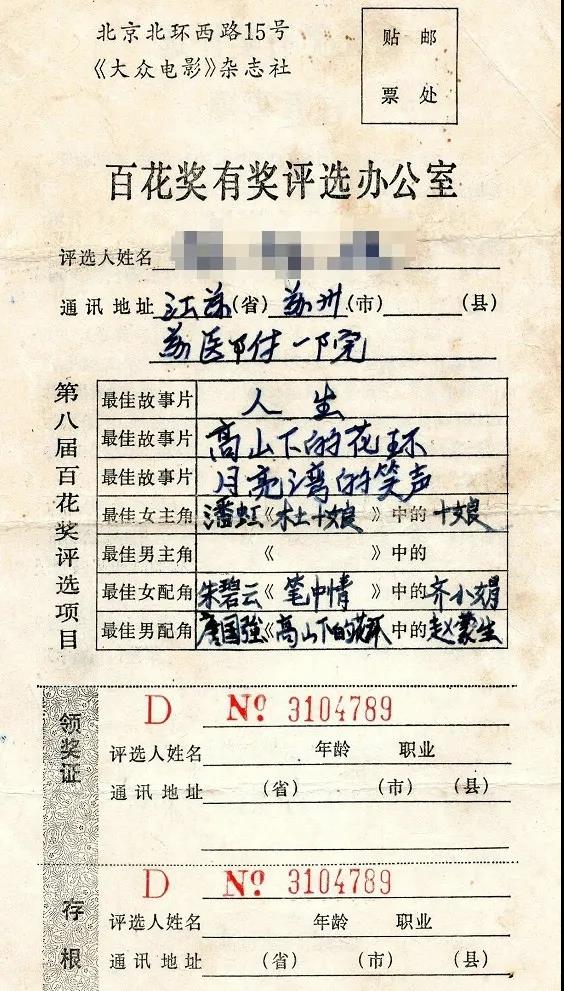 北京北环西路15号
《大众电影》杂志社
贴邮
票处
百花奖有奖评选办公室
评选人姓名
通讯地址 江苏(省) 苏州(市) (县)
苏医附一院
第八届百花奖评选项目
最佳故事片 人生
最佳故事片 高山下的花环
最佳故事片 月亮湾的笑声
最佳女主角 潘虹《杜十娘》中的 十娘
最佳男主角 《 》中的
最佳女配角 朱碧云《笔中情》中的 齐小娟
最佳男配角 唐国強《高山下的花环》中的 赵蒙生
领奖证
D No 3104789
评选人姓名 年龄 职业
通讯地址 (省) (市) (县)
存根
D No 3104789
评选人姓名 年龄 职业
通讯地址 (省) (市) (县)